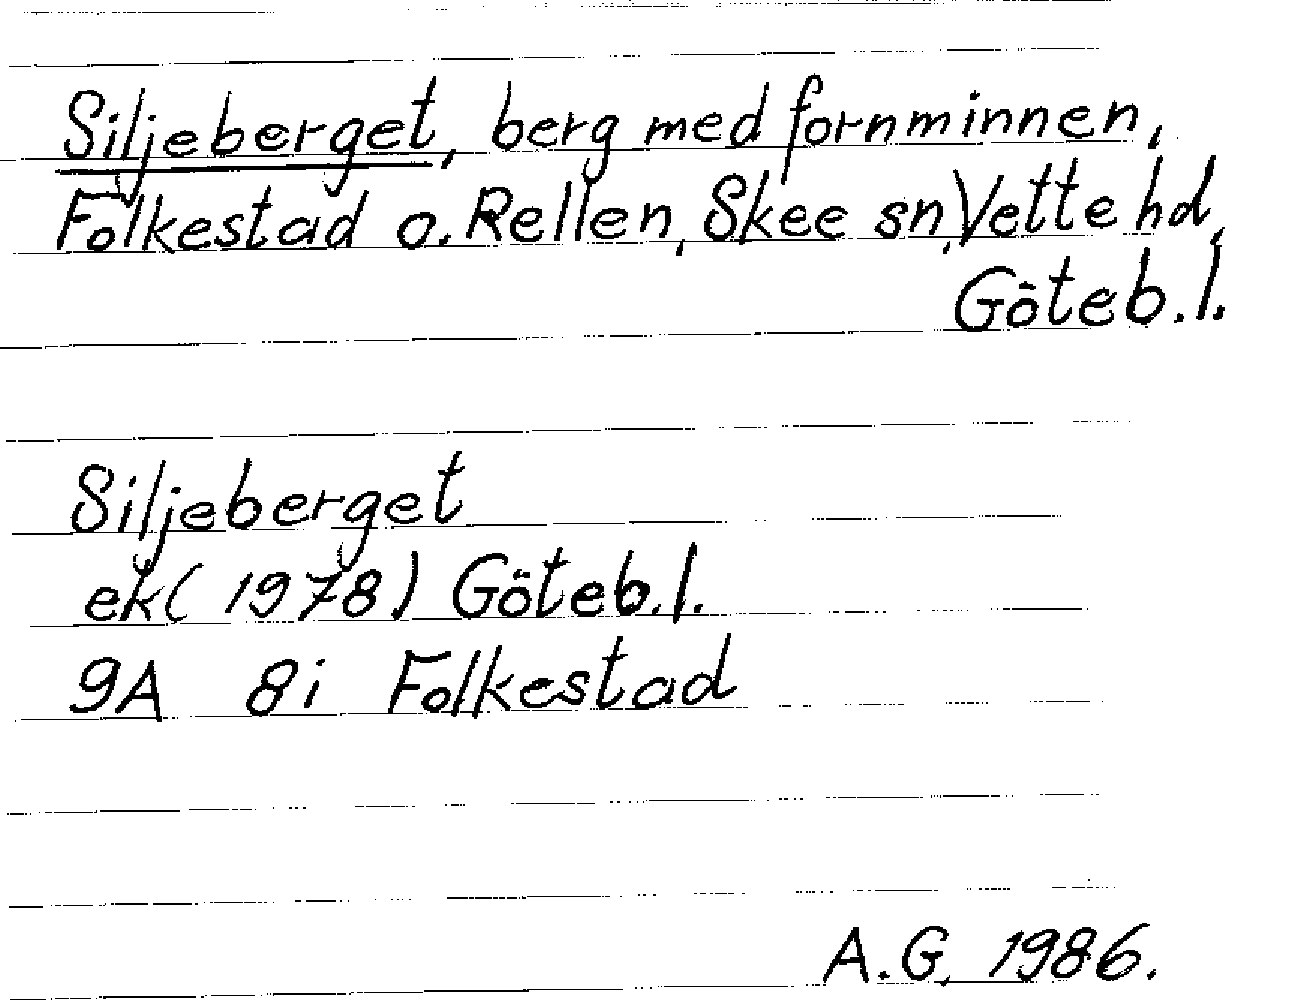 Siljeberget, berg med fornminnen,
Folkestad o. Rellen, Skee sn, Vette hd,
Göteb. l.
Siljeberget
ek (1978) Göteb. l.
9A 8i Folkestad
A.G. 1986.